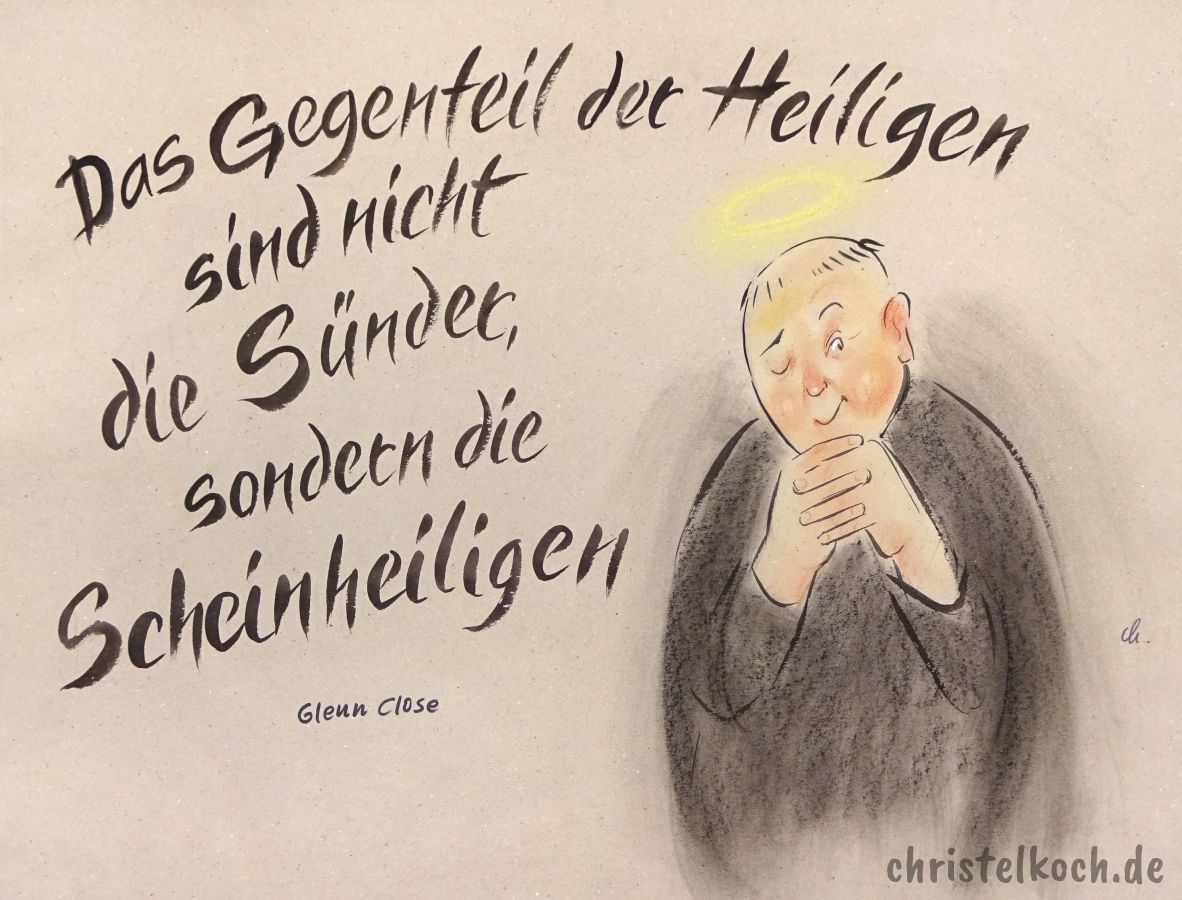 Das Gegenteil der Heiligen
sind nicht
die Sünder,
sondern die
Scheinheiligen
Glenn Close
ch.
christelkoch.de